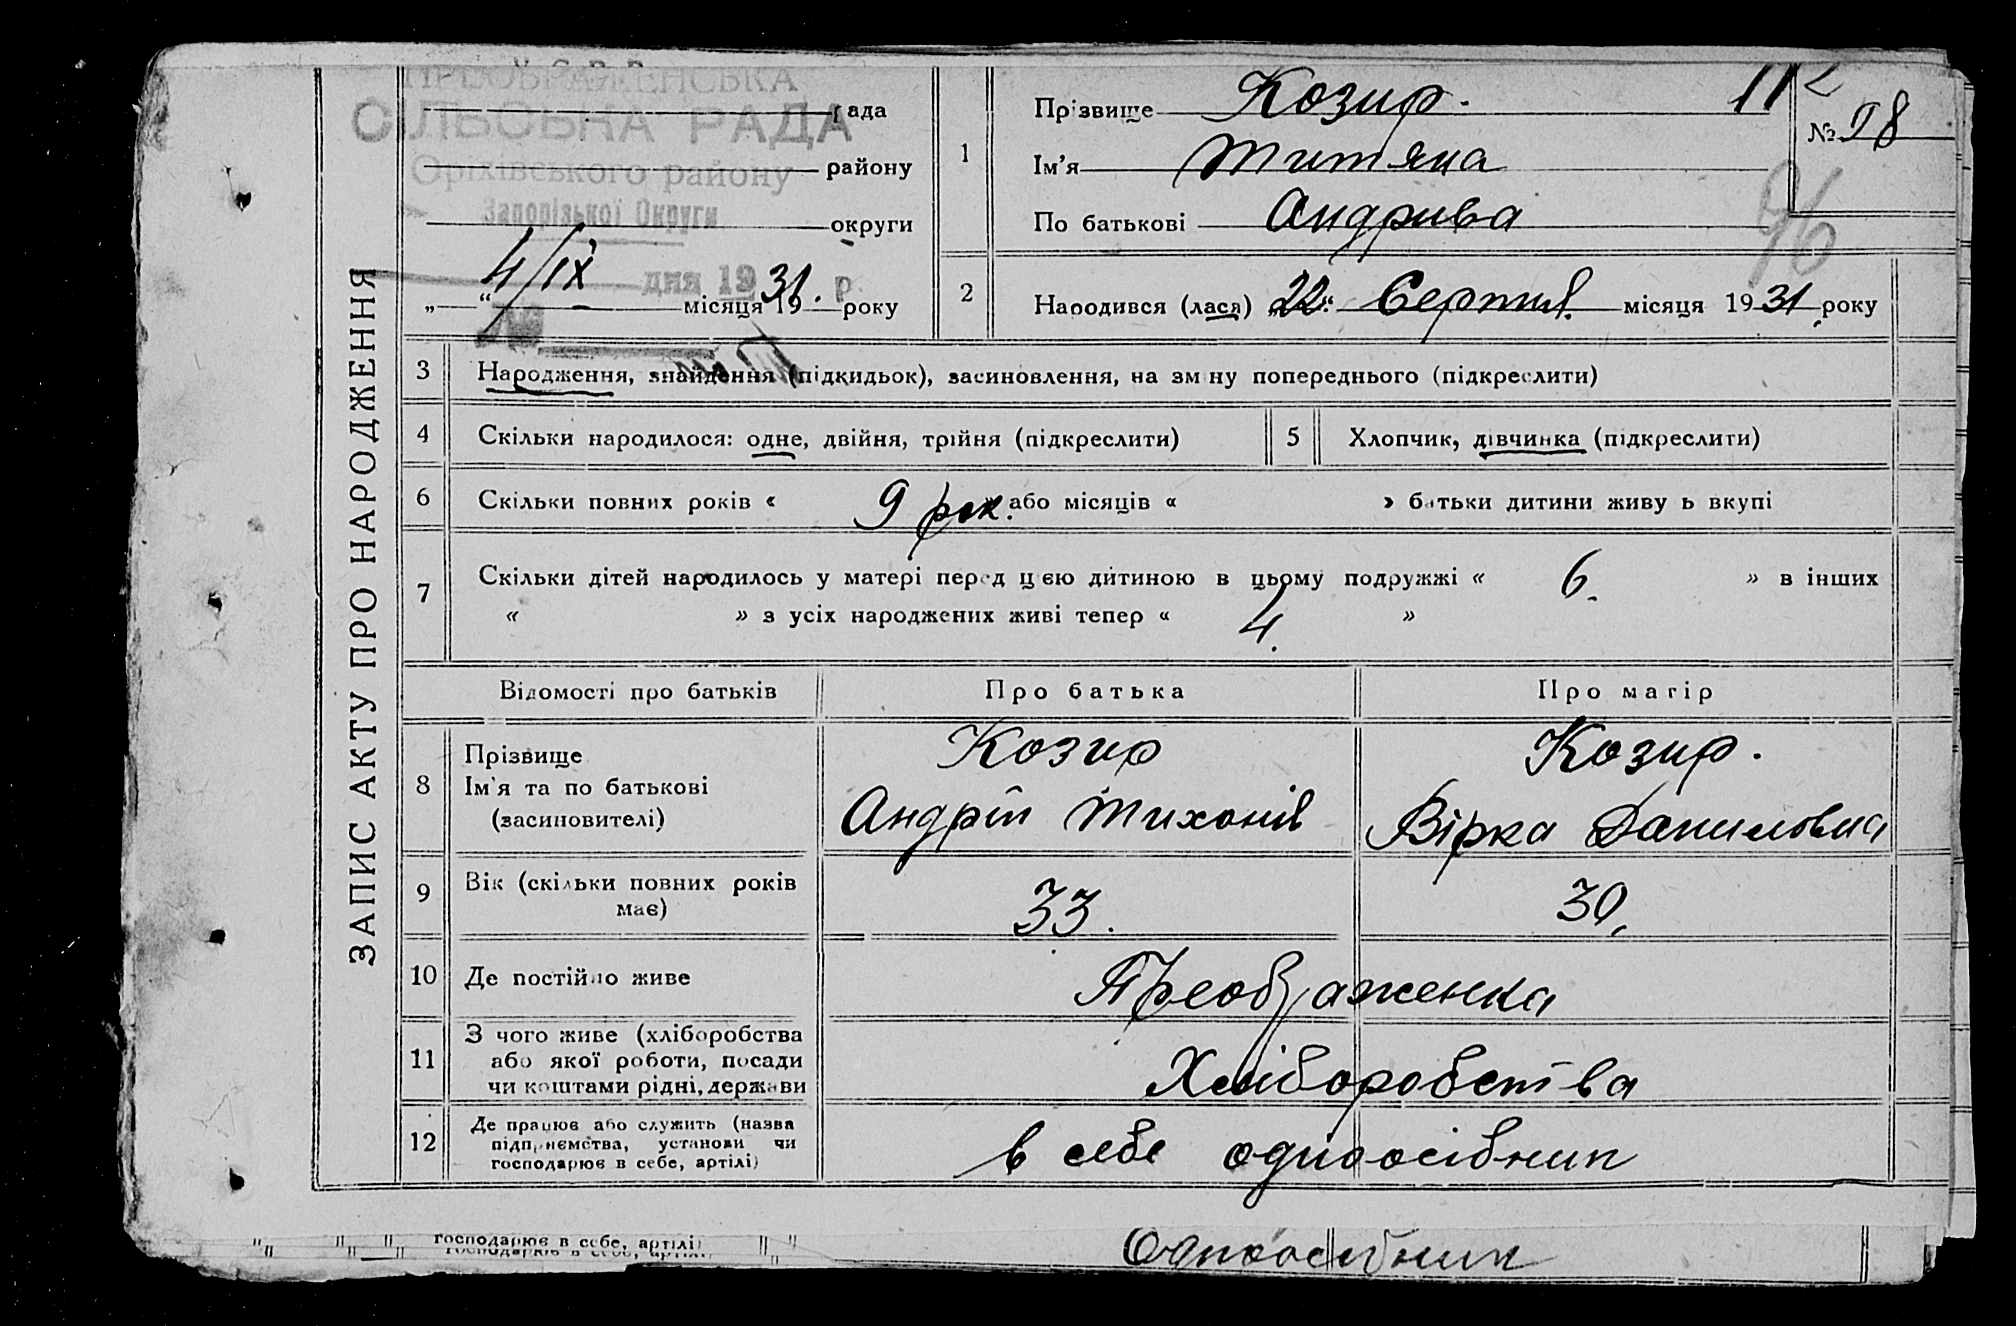 ЗАПИС АКТУ ПРО НАРОДЖЕННЯ
ПРЕОБРАЖЕНСЬКА
СІЛЬСЬКА РАДА
Оріхівського району
Запорізької Округи
рада
району
округи
4/ІХ дня 19 р.
„ “ місяця 1931. року
1
Прізвище Козир.
Ім’я Титяна
По батькові Андрива
11
№ 98
96
2
Народився (лася) „22“ Серпня. місяця 1931 року
3 Народження, знайдення (підкидьок), засиновлення, на зміну попереднього (підкреслити)
4 Скільки народилося: одне, двійня, трійня (підкреслити)
5 Хлопчик, дівчинка (підкреслити)
6 Скільки повних років « 9 рок. або місяців « » батьки дитини живуть вкупі
7 Скільки дітей народилось у матері перед цією дитиною в цьому подружжі « 6. » в інших
« » з усіх народжених живі тепер « 4. »
Відомості про батьків Про батька Про матір
8 Прізвище
Ім’я та по батькові
(засиновителі)
Козир
Андрій Тихонів
Козир.
Вірка Даниловна
9 Вік (скільки повних років
має)
33.
30.
10 Де постійно живе Преображенка
11 З чого живе (хліборобства
або якої роботи, посади
чи коштами рідні, держави
Хліборобства
12 Де працює або служить (назва
підприємства, установи чи
господарює в себе, артілі)
в себе одноосібник
господарює в себе, артілі)
господарює в себе, артілі
Одноосібник